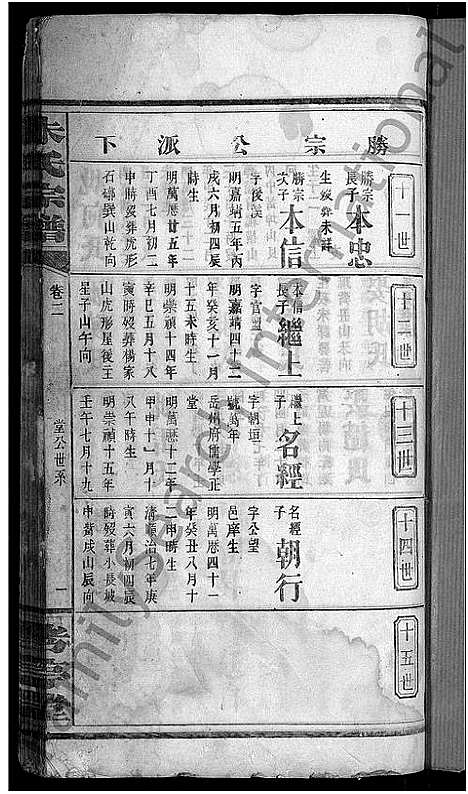 勝宗公派下
十一世
勝宗長子 本忠
生歿葬未詳
勝宗次子 本信
字後漢
明嘉靖五年丙
戌六月初四辰
時生
明萬曆廿五年
丁酉七月初二
申時歿葬虎形
石磜巽山乾向
十二世
本信長子 繼上
字官
明嘉靖四十二
年癸亥十一月
十五未時生
明崇禎十四年
辛巳五月十八
寅時歿葬楊家
山虎形屋後壬
星子山午向
十三世
繼上子 名經
字朝垣
號萬年
岳州府儒學正
堂
明萬曆十二年
甲申十一月十
八午時生
明崇禎十五年
壬午七月十九
十四世
名經子 朝行
字公望
邑庠生
明萬曆四十一
年癸丑八月十
二申時生
清順治七年庚
寅六月初四辰
時歿葬小長坡
申向成山辰向
十五世
朱氏宗譜
卷二
堂公世系
一